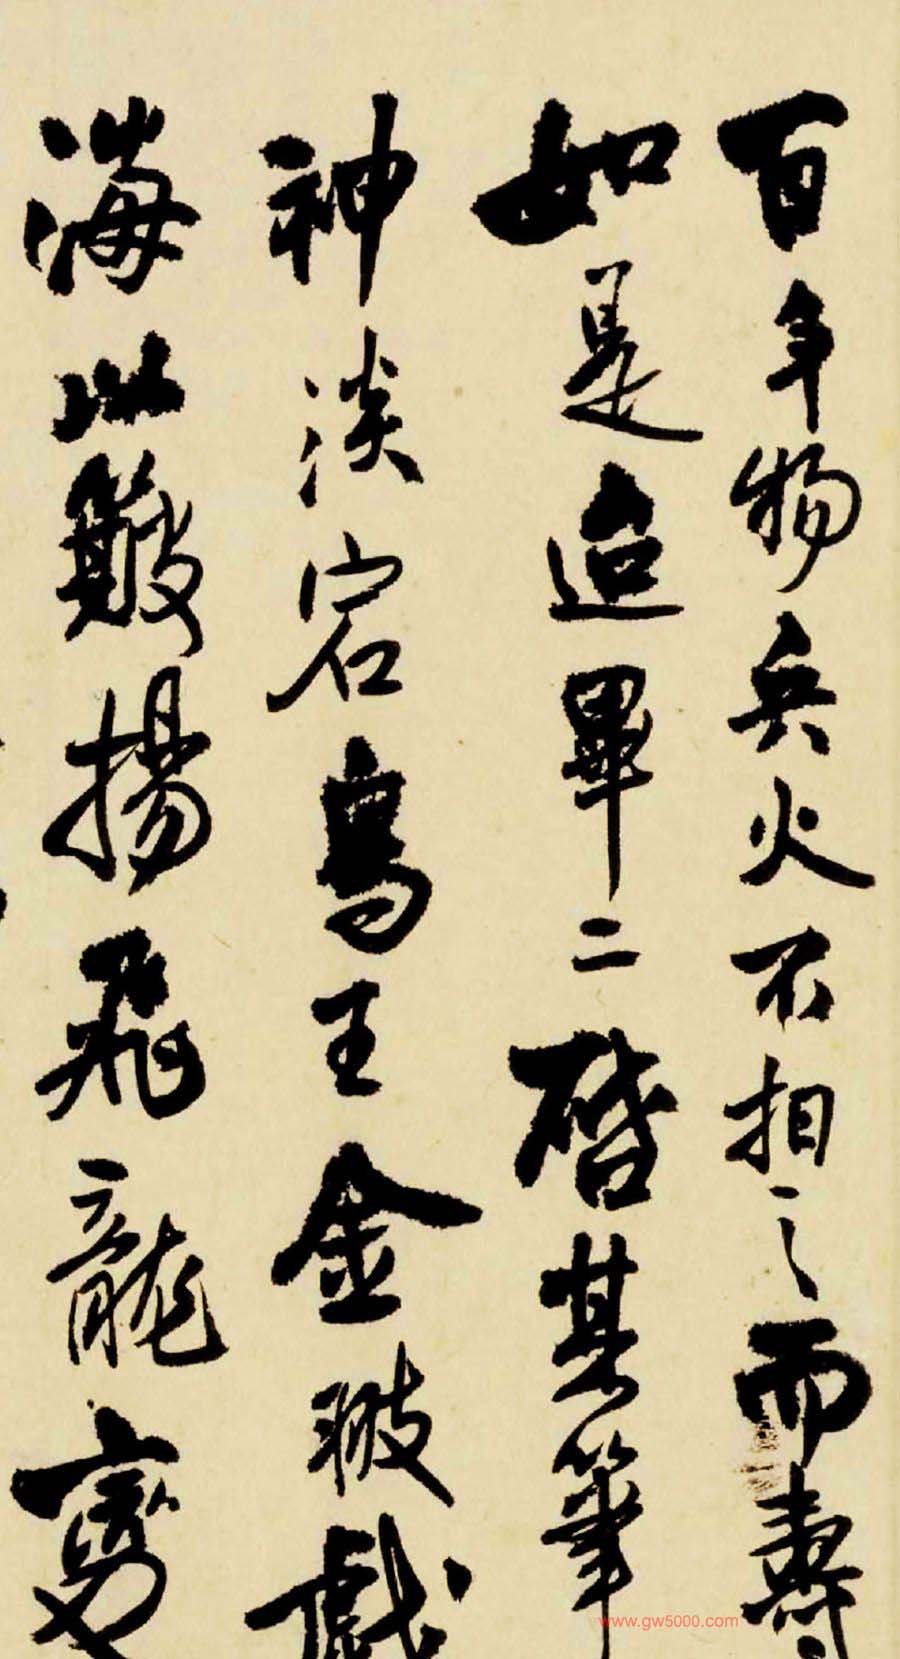 百年物兵火不相之而壽
如是迨畢二啓其筆
神淡宕鳥王金翅戲
海以簸揚飛龍變
www.gw5000.com